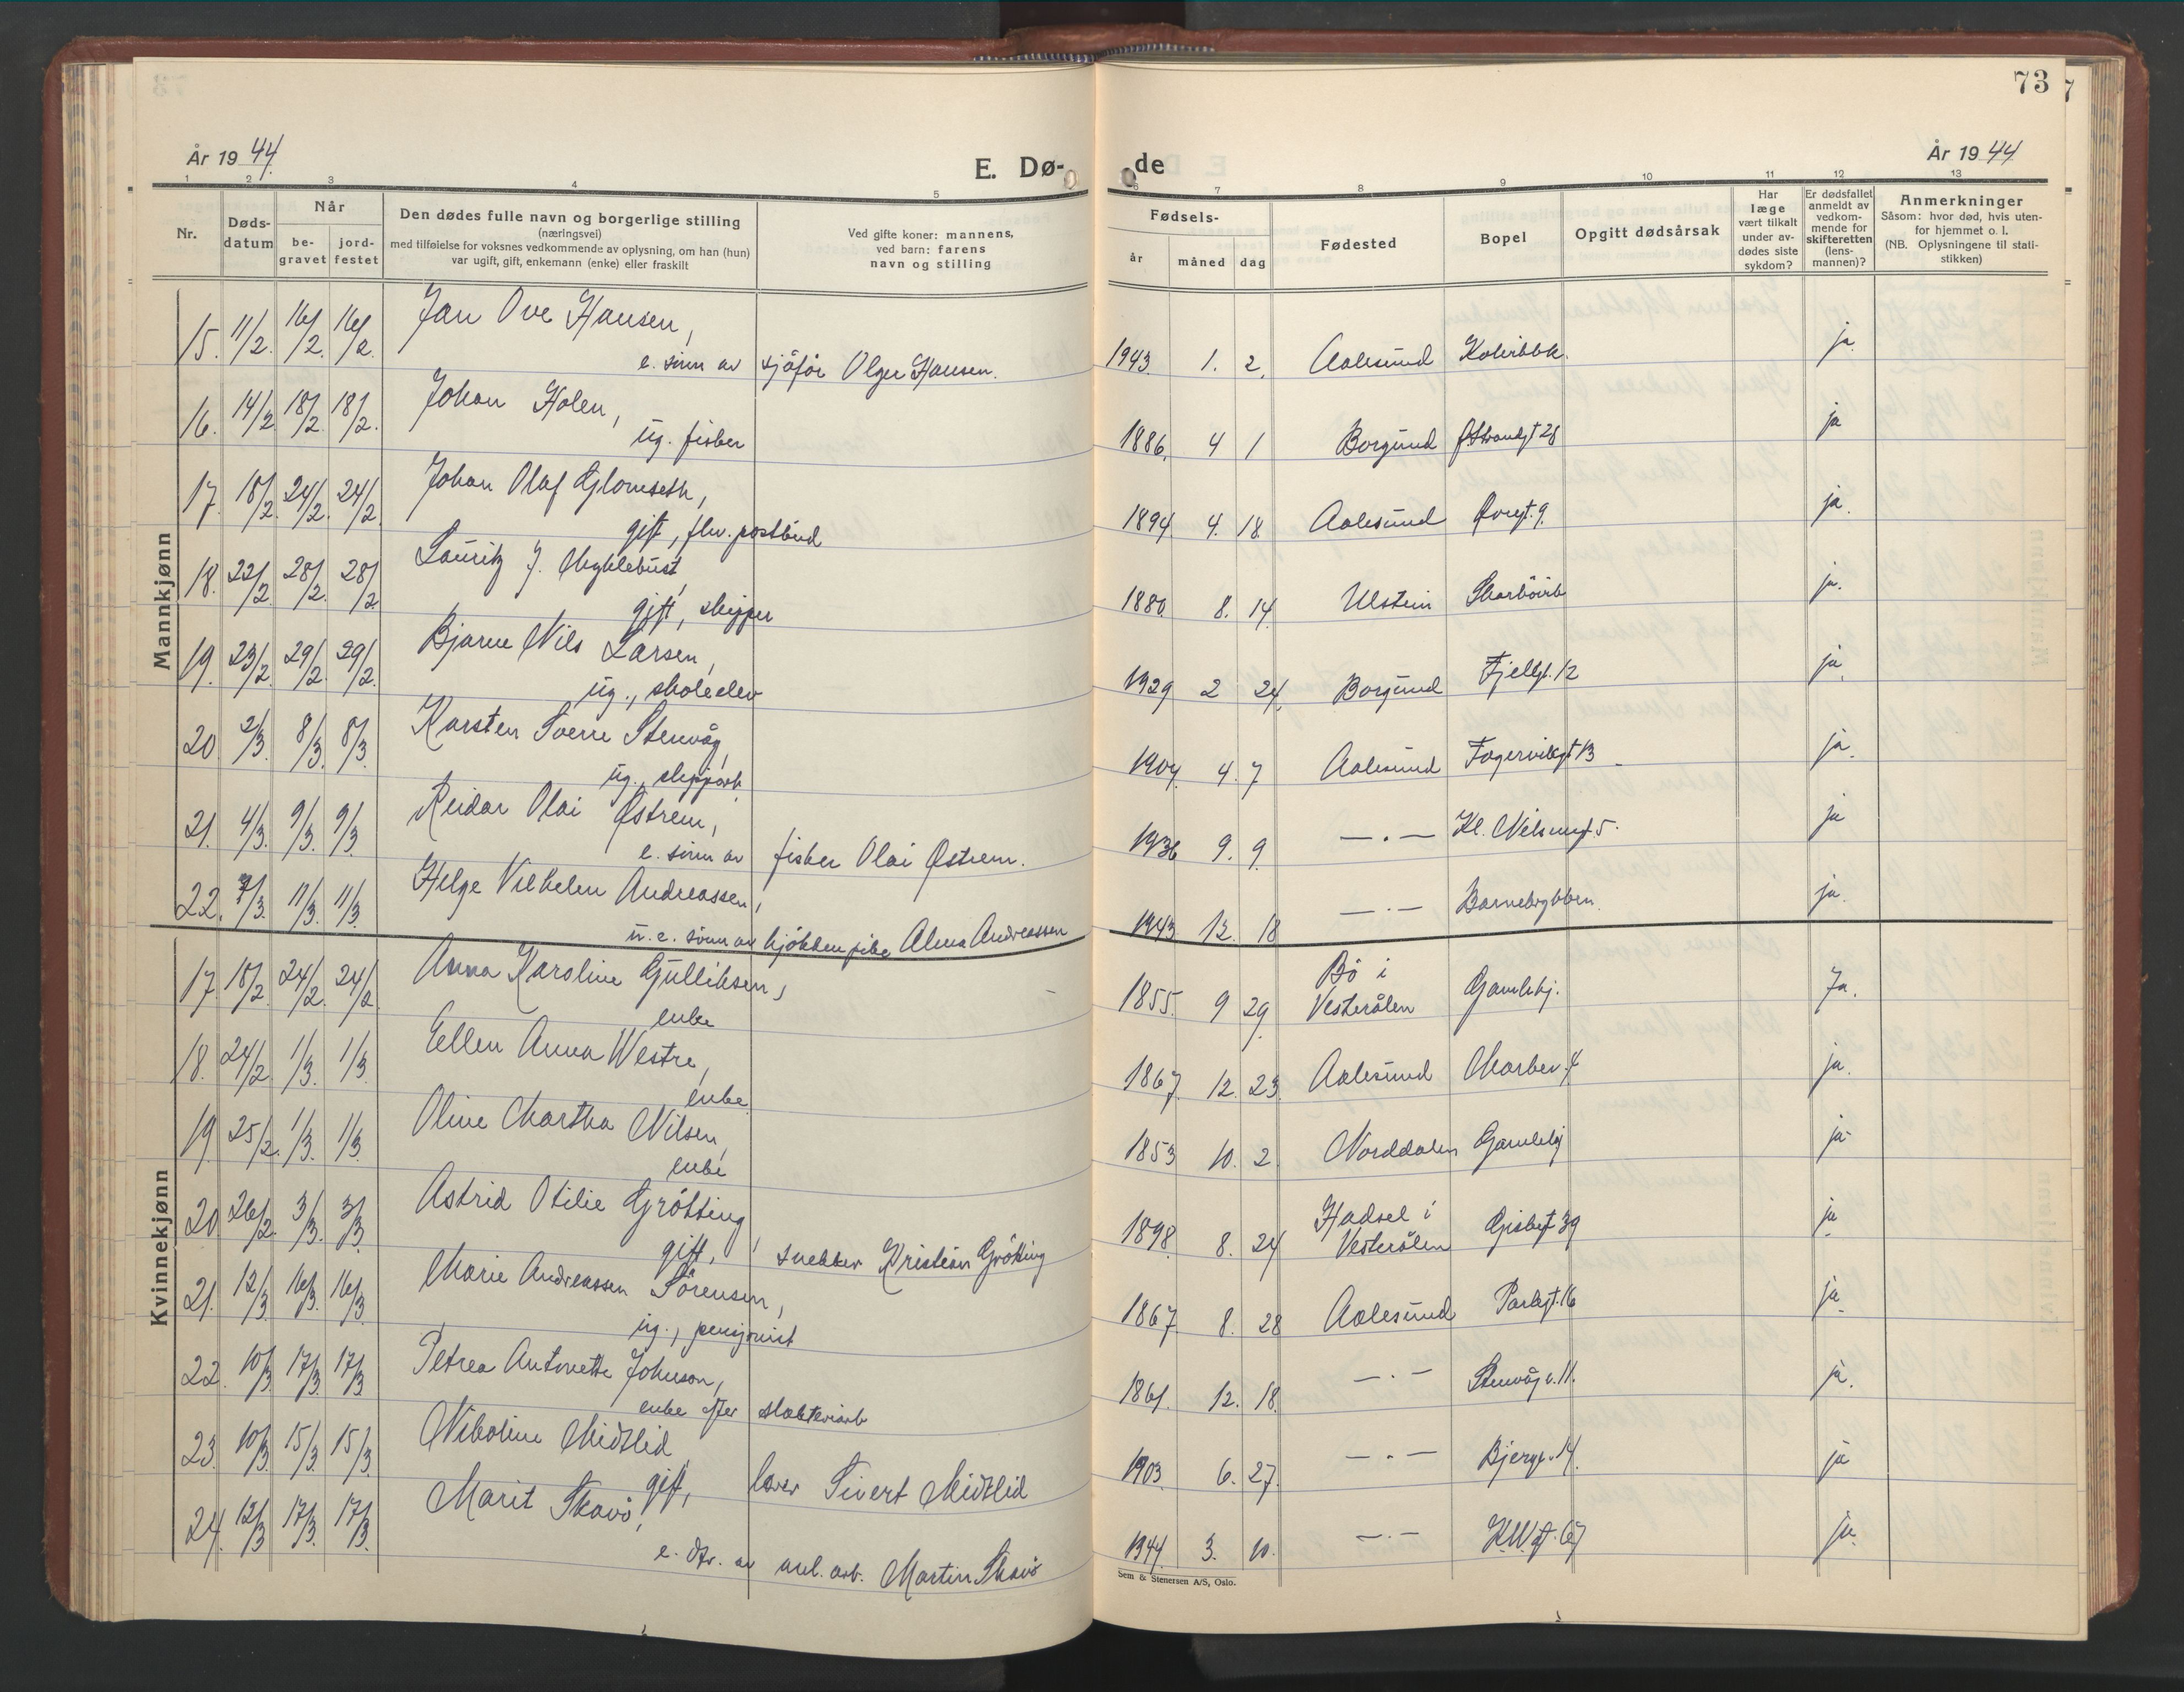 73
År 1944.
E. Dø-
de
År 1944
1 2 3 4 5 6 7 8 9 10 11 12 13
Nr.
Døds-
datum
Når
be-
gravet
jord-
festet
Den dødes fulle navn og borgerlige stilling
(næringsvei)
med tilføielse for voksnes vedkommende av oplysning, om han (hun)
var ugift, gift, enkemann (enke) eller fraskilt
Ved gifte koner: mannens,
ved barn: farens
navn og stilling
Fødsels-
år måned dag
Fødested
Bopel
Opgitt dødsårsak
Har
læge
vært tilkalt
under av-
dødes siste
sykdom?
Er dødsfallet
anmeldt av
vedkom-
mende for
skifteretten
(lens-
mannen)?
Anmerkninger
Såsom: hvor død, hvis uten-
for hjemmet o. l.
(NB. Oplysningene til stati-
stikken)
Mannkjønn
15. 11/2. 16/2. 16/2. Jan Ove Hansen,
e. sønn av sjåfør Olger Hansen. 1943. 1. 2. Aalesund ja
16. 14/2 18/2. 18/2. Johan Holen,
ug. fisker 1886. 4 1 Borgund Ø. Strandgt 28 ja
17. 18/2. 24/2. 24/2. Johan Olaf Glomseth,
gift, flv. postbud 1894. 4. 18. Aalesund Øvregt. 9. ja.
18. 22/2. 28/2. 28/2. Lauritz J. Myklebust,
gift, skipper 1880. 8. 14. Ulstein ja.
19. 23/2. 29/2. 29/2. Bjarne Nils Larsen,
ug., skoleelev 1929 2 24. Borgund Fjellgt. 12 ja.
20 2/3. 8/3. 8/3. Karsten Sverre Stenvåg,
ug., 1904. 4. 7 Aalesund Fagervikgt 13 ja.
21. 4/3. 9/3. 9/3. Reidar Olai Østrem,
e. sønn av fisker Olai Østrem. 1936 9. 9. — . — Kl. Nilsengt. 5. ja
22. 7/3. 11/3. 11/3. Helge Vilhelm Andreassen,
u. e. sønn av kjøkkenpike Alma Andreassen 1943 12. 18 — . — Barnekrybben. ja.
Kvinnekjønn
17. 18/2. 24/2. 24/2. Anna Karoline Gulliksen,
enke 1855. 9 29. Bö i Vesterålen Gamlehj. Ja.
18. 24/2. 1/3. 1/3. Ellen Anna Westre,
enke. 1867. 12. 23. Aalesund ja.
19. 25/2. 1/3. 1/3. Oline Martha Nilsen,
enke 1853 10. 2. Norddalen Gamlehj ja
20 26/2. 3/3. 3/3. Astrid Otilie Grötting,
gift, snekker Kristian Grötting 1898. 8. 24 Hadsel i Vesterålen 39 ja
21. 12/3. 16/3. 16/3. Marie Andreassen Sörensen,
ug., pensjonist 1867. 8. 28 Aalesund Parkgt. 16 ja.
22. 10/3. 17/3. 17/3. Petrea Antonette Johnson,
enke efter slakteriarb 1861. 12. 18. — . — Stenvåg v. 11. ja.
23. 10/3. 15/3. 15/3. Nikoline Midtlid
gift, lærer Sivert Midtlid 1903. 6. 27. — . — Bjergt. 14. ja
24. 12/3 17/3. 17/3. Marit Skavö,
e. dtr. av mel. arb. Martin Skavö 1944. 3. 10. — . — ja.
Sem & Stenersen A/S, Oslo.